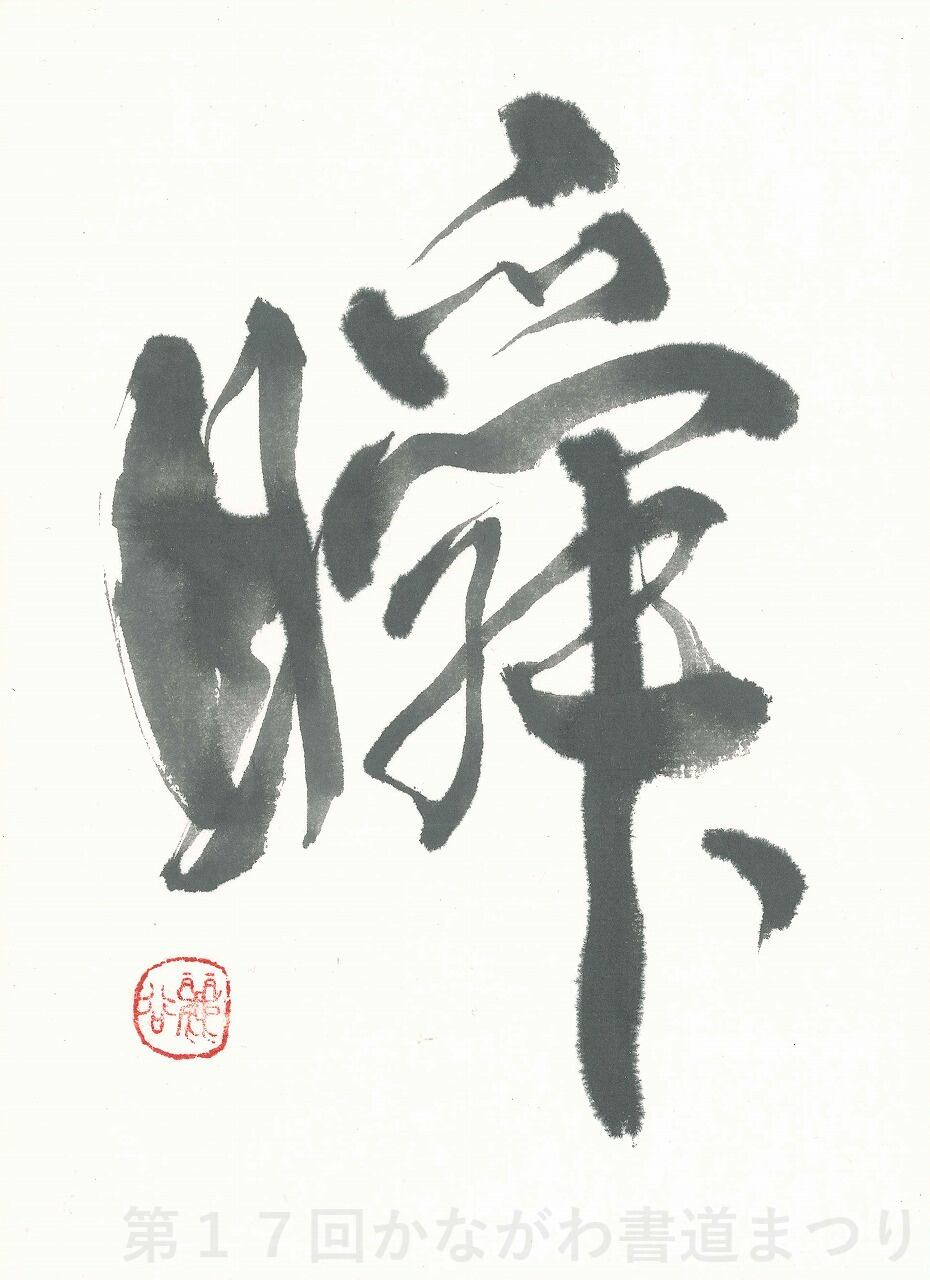 瞬
第１７回かながわ書道まつり